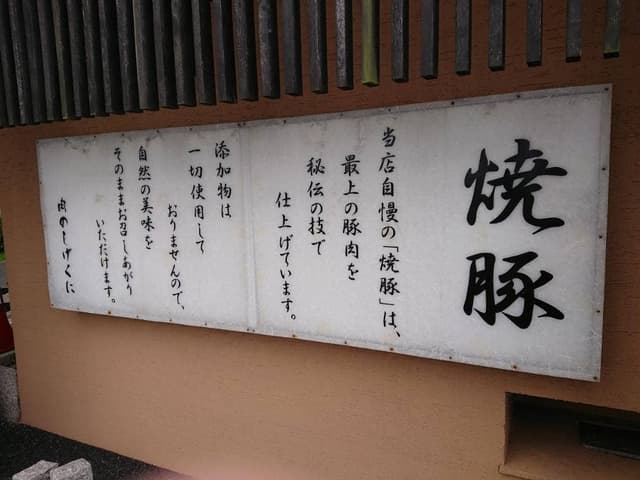 焼豚
当店自慢の「焼豚」は、
最上の豚肉を
秘伝の技で
仕上げています。
添加物は
一切使用して
おりませんので、
自然の美味を
そのままお召しあがり
いただけます。
肉のしげくに